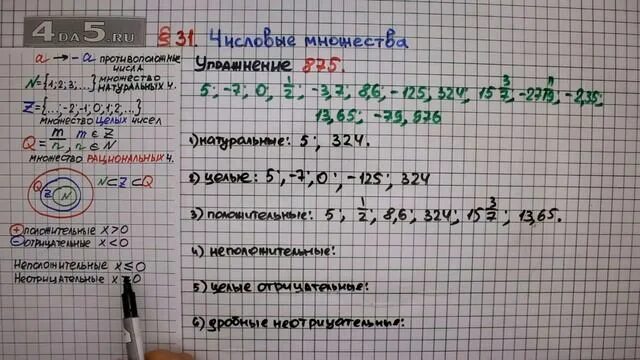 4DA5.RU
§ 31. Числовые множества
Упражнение 875.
5; -7; 0; 1/2; -3,7; 8,6; -125; 324; 15 3/7; -2,35;
13,65; -79, 976
1) натуральные: 5; 324.
2) целые: 5; -7; 0; -125; 324
3) положительные: 5; 1/2; 8,6; 324; 15 3/7; 13,65.
4) неположительные:
5) целые отрицательные:
6) дробные неотрицательные:
a → -a противоположные
числа
N={1; 2; 3; ...} множество
натуральных ч.
Z={...; -2; -1; 0; 1; 2, ...}
множество целых чисел
Q = m/n, m ∈ Z, n ∈ N
множество рациональных ч.
Q Z N N⊂Z⊂Q
+ положительные x>0
- отрицательные x<0
Неположительные x ≤ 0
Неотрицательные x 0